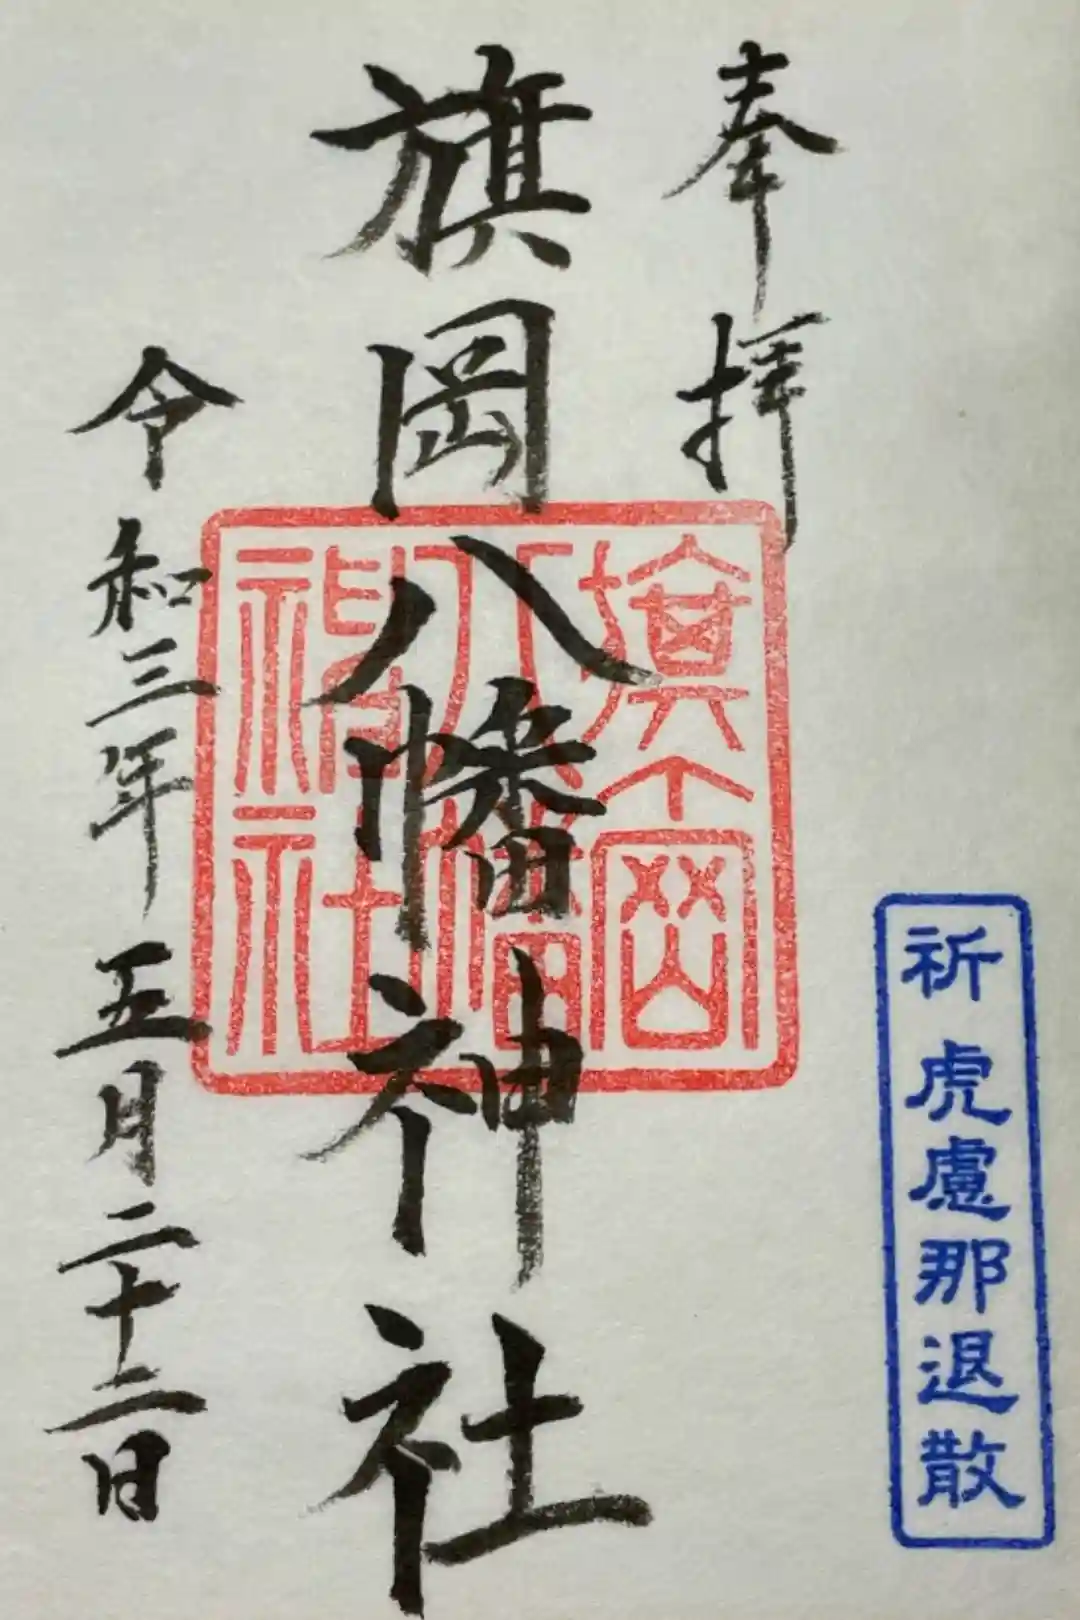 奉拝
旗岡八幡神社
旗岡
八幡
神社
令和三年五月二十二日
祈 虎慮那退散